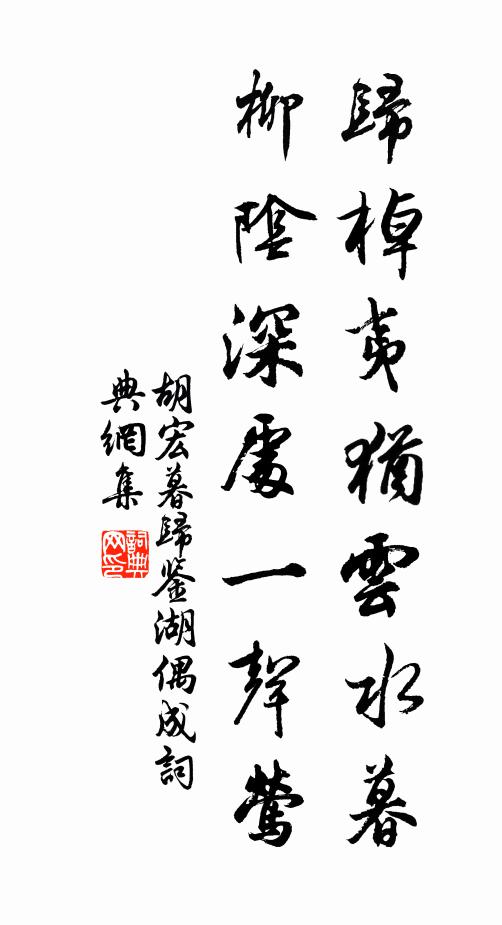 歸棹夷猶雲水暮
柳陰深處一聲鶯
胡宏暮歸鉴湖偶成詞
典網集
詞典
网印